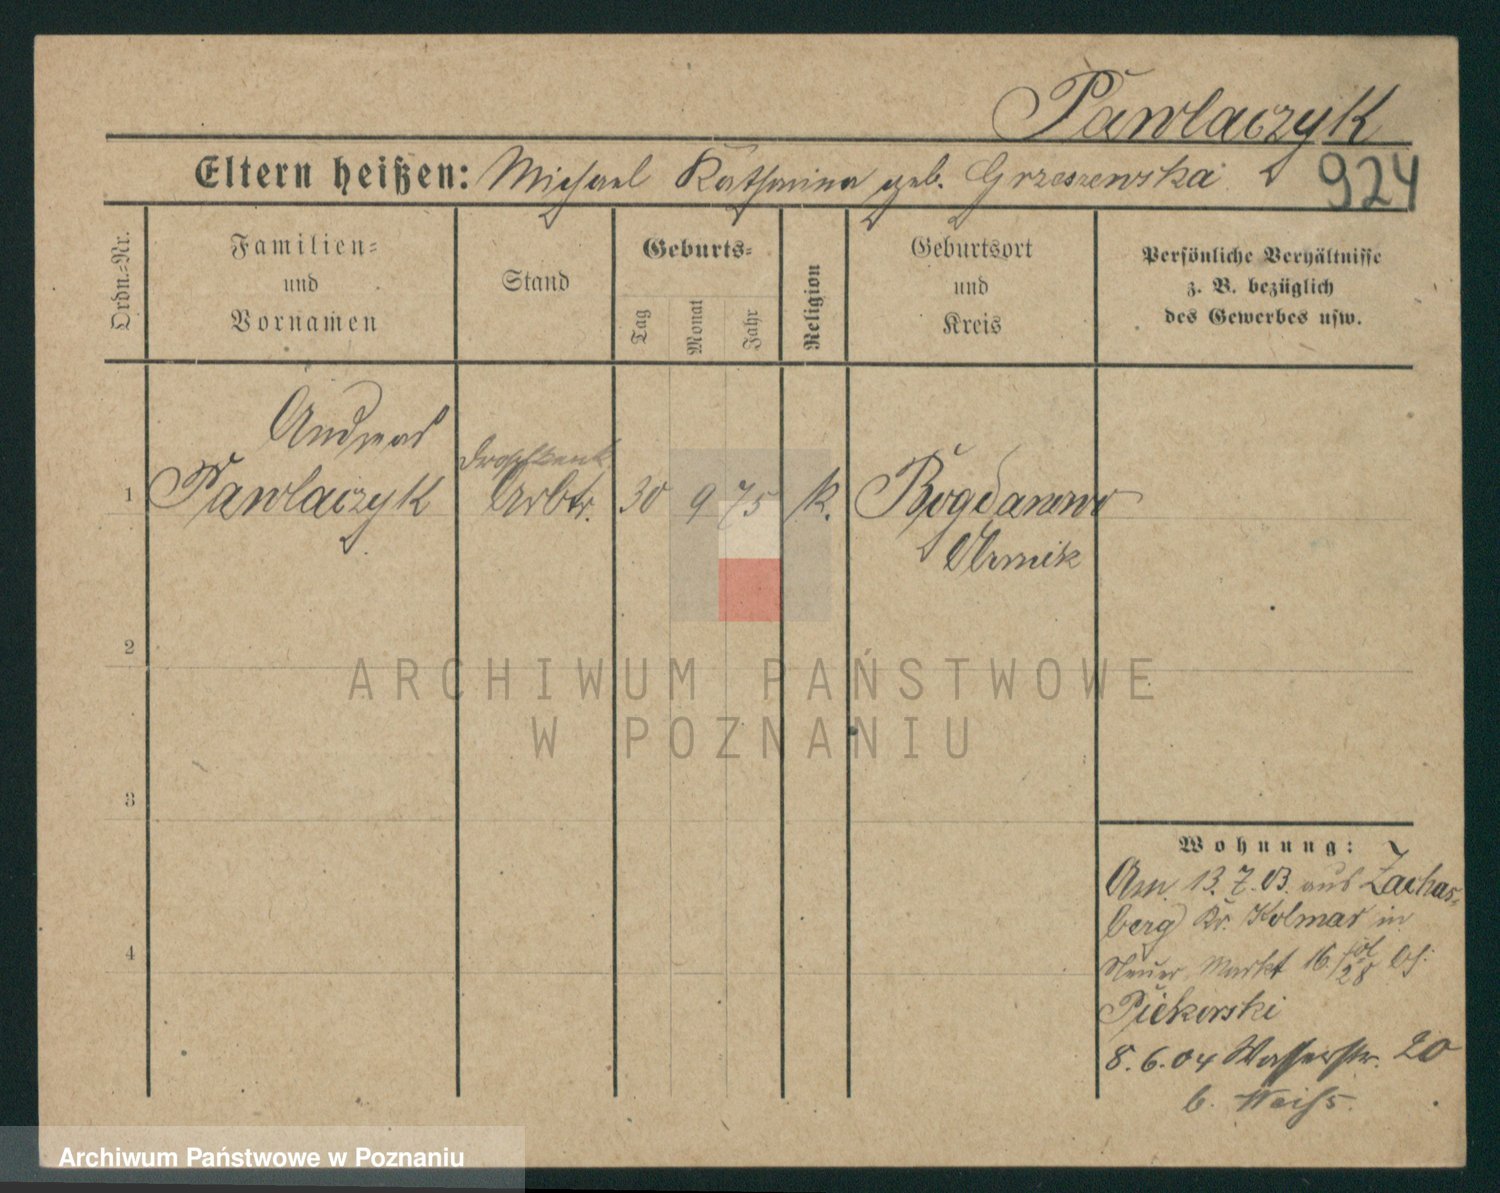 Pawlaczyk
Eltern heißen: Michael Katharina geb. Grzeszewska
924
Ordn.-Nr.
Familien-
und
Vornamen
Stand
Geburts-
Tag
Monat
Jahr
Religion
Geburtsort
und
Kreis
Persönliche Verhältnisse
z. B. bezüglich
des Gewerbes usw.
Andreas
1 Pawlaczyk Arbtr. 30 9 75 k. Bogdanowo
Obornik
2
3
4
ARCHIWUM PAŃSTWOWE
W POZNANIU
Wohnung:
Am 13.7.03. aus Zachas-
berg Kr. Kolmar in
Neuer Markt 16. bei
Piekorski
8.6.04 Wasserstr. 20
b. Weiss.
Archiwum Państwowe w Poznaniu